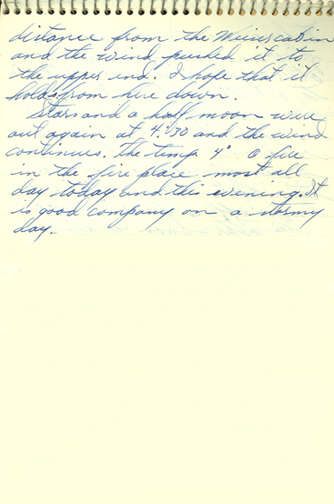 distance from the Weisers cabin
and the wind pushed it to
the upper end. I hope that it
holds from here down.
Stars and a half moon were
out again at 4:30 and the wind
continues. The temp 4° a fire
in the fire place most all
day today and this evening. It
is good company on a stormy
day.